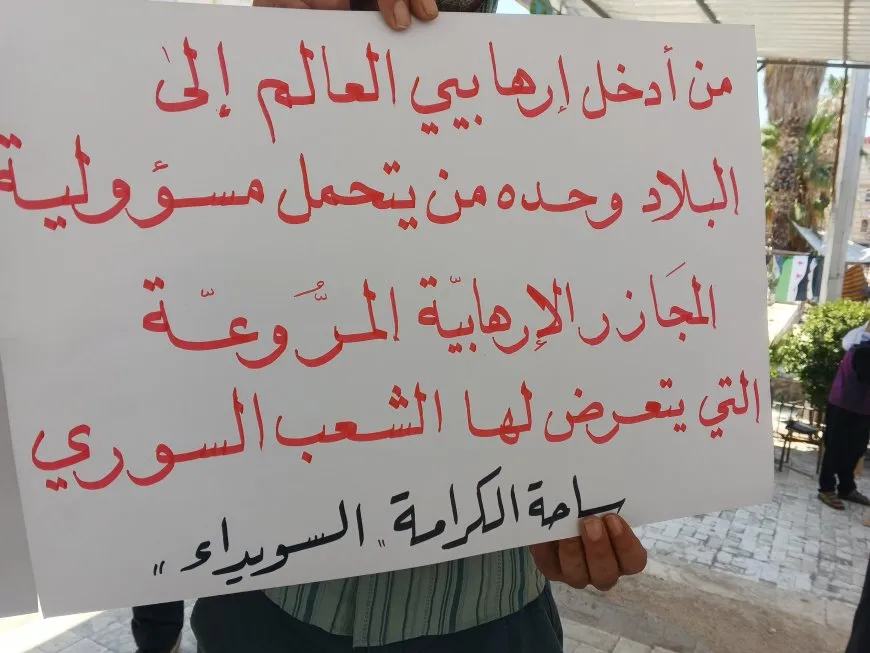 من أدخل إرهابيي العالم إلىٰ
البلاد وحده من يتحمل مسؤولية
المجَازر الإرهابيّة المرُّوعّة
التي يتعرض لها الشعب السوري
ساحة الكرامة "السويداء"